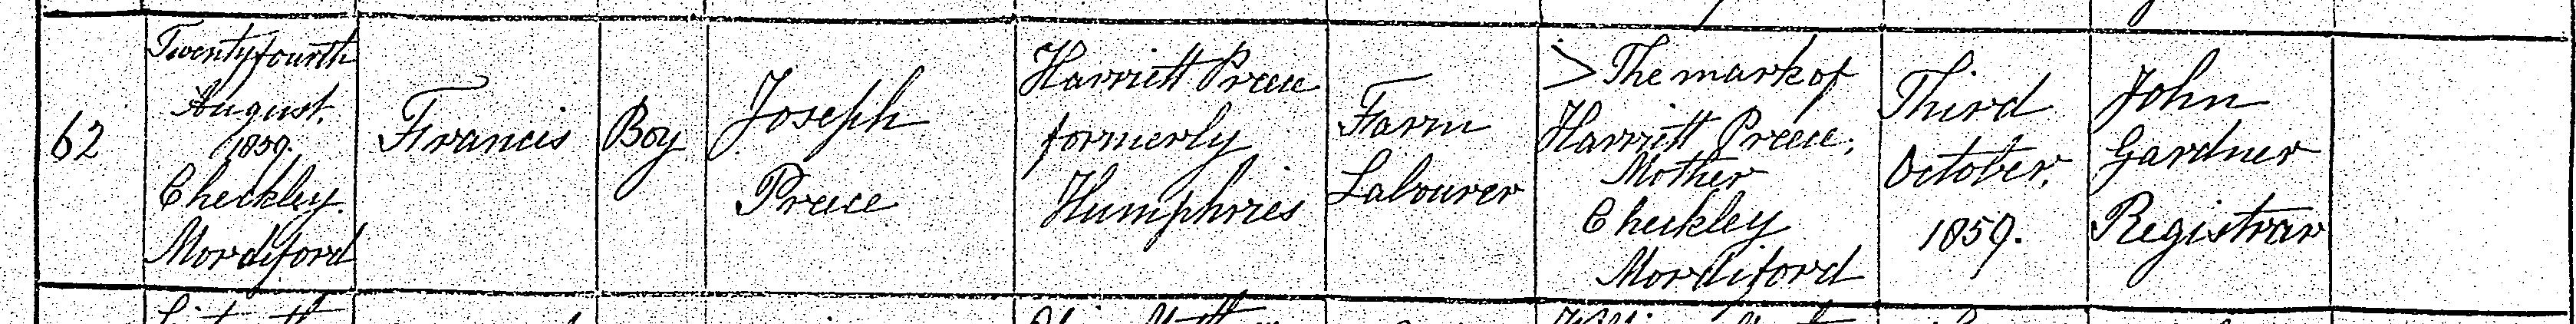 62
Twentyfourth
August.
1859.
Checkley.
Mordiford
Francis
Boy
Joseph
Preece
Harriett Preece
formerly
Humphries
Farm
Labourer
> The mark of
Harriett Preece,
Mother
Checkley
Mordiford
Third
October.
1859.
John
Gardner
Registrar